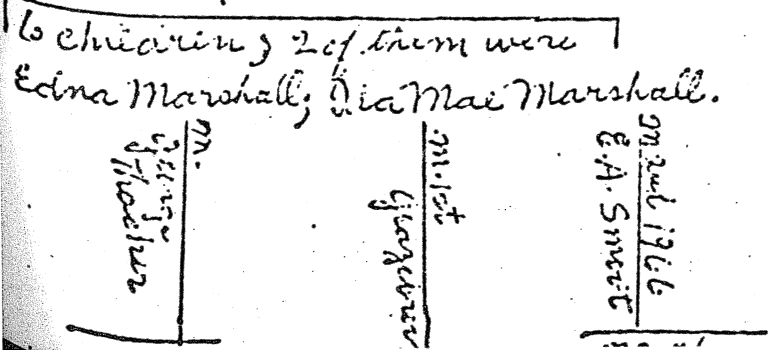 6 children; 2 of them were
Edna Marshall; Ila Mae Marshall.
m.
George
Thacker
m. 1st
m 2nd 1966
E.A. Smoit